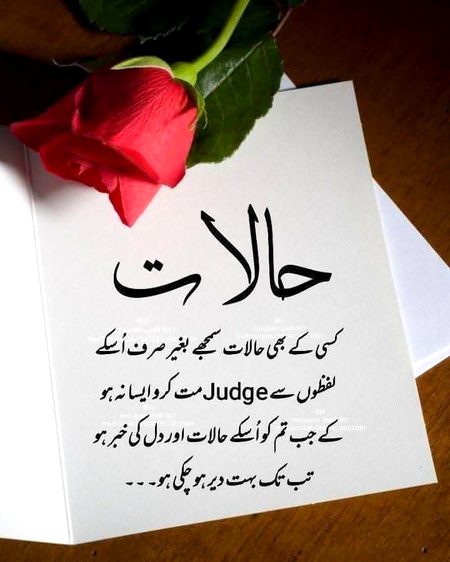 حالات
کسی کے بھی حالات سمجھے بغیر صرف اُسکے
لفظوں سے Judge مت کرو ایسا نہ ہو
کے جب تم کو اُسکے حالات اور دل کی خبر ہو
تب تک بہت دیر ہو چکی ہو۔۔۔